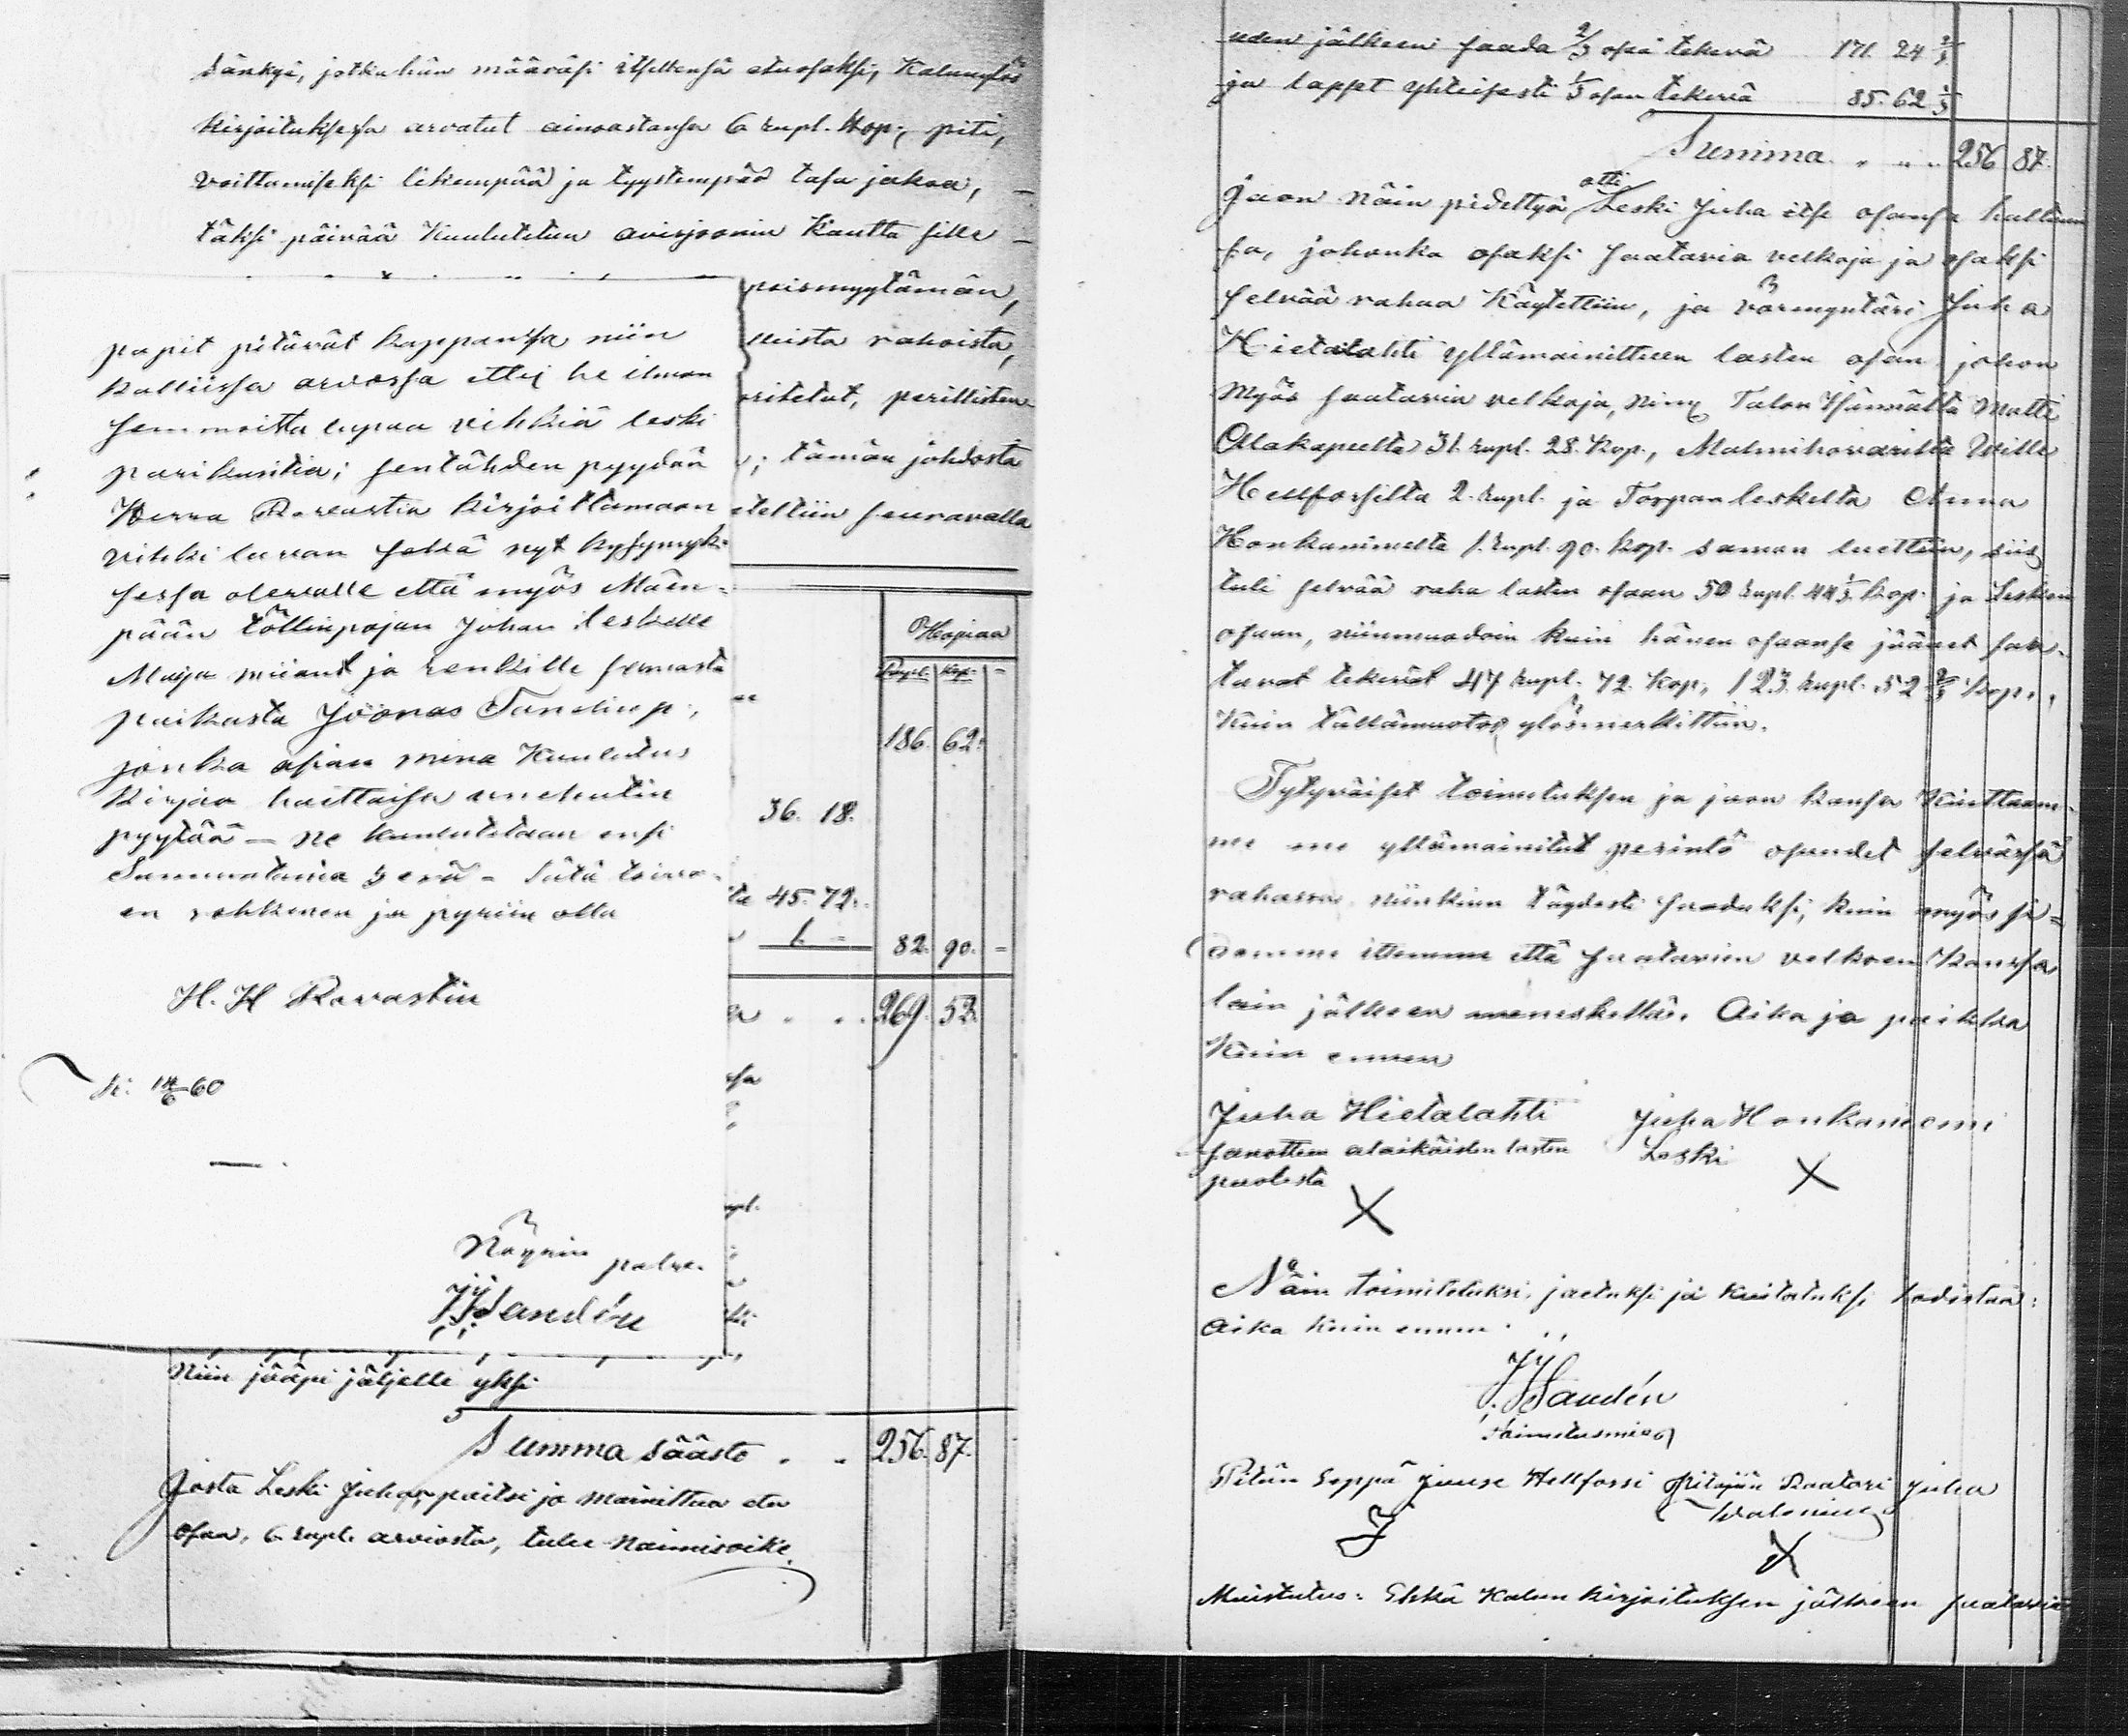 sänkyä, jotka hän määräsi itsellensä etuosaksi, Kalunylös
kirjoituksessa arvatut ainoastansa 6 rupl. kop., piti,
voittamiseksi likempää ja tyystempää tasa jakoa,
täksi päivää kuulutetun avisjoonin kautta sille
poismyytämän,
rahoista,
perillisten
; tämän johdosta
teltiin seuravalla
papit pitävät kappansa niin
kalliissa arvossa ettej he ilman
semmoitta lupaa vihkiä leski
parikuntia; sentähden pyydän
Herra Rovastia kirjoittamaan
vihki luvan sekä nyt kysymyk-
sessa olevalle että myös Mäen-
pään Töllinpojan Johan leskelle
Maija miiant ja renkille samasta
paikasta Joonas Tandinp.,
jonka asian mina kuulutus
kirjaa haittaisa unehutin
pyytää - ne kuulutetaan ensi
Sunnuntaina 3 erä - Sitä toivo-
en rohkenen ja pyriin olla
H. H Rovastin
14/6 60
Nöyrin palve.
JJSandén
Hopiaa
Rupl. Kop.
186. 62.
36. 18.
45. 72.
1. = 82. 90. -
269. 52.
Niin jääpi jäljelle yksi
Summa säästö . . 256. 87.
Josta Leski Juha, paitsi jo mainittua etu
osaa, 6. rupl. arviosta, tulee Naimisoike.
uden jälkeen saada 2/3 osa tekevä 171. 24 2/3
ja lapset yhteisesti 1/3 osan tekevä 85. 62 1/3
Summa . . . . 256 87.
Jaon näin pidettyä, otti Leski Juha itse osansa haltuun
sa, johonka osaksi saatavia velkoja ja osaksi
selvää rahaa käytettiin, ja Vörmyntäri Juha
Hietalahti yllämainitteen lasten osan johon
Myös saatavia velkoja, nimx Talon Isännältä Matti
Alakapeelta 31. rupl. 28. kop., Malmihovarilta Wille
Hellforsilta 2. rupl. ja Torpan leskelta Anna
Honkaniemelta 1. rupl. 90. kop. saman luettiin, siis
tuli selvää raha lasten osaan 50 rupl. 44 1/3 kop. ja Lesken
osaan, niinmuodoin kuin hänen osaansa jäänet saa-
tavat tekevät 47 rupl. 72. kop., 123. rupl. 52 2/3 kop.,
kuin tällämuotoa ylösmerkittiin.
Tytyväiset toimituksen ja jaon kansa kuittaam-
me me yllämainitut perintö osuudet selvässä
rahassa niinkuin täydesti saaduksi, kuin myös si-
domme ittemme että saatavien velkoen kanssa
lain jälkeen meneskellä. Aika ja paikka
kuin ennen
Juha Hietalahti Juha Honkaniemi
sanottuin alaikäisten lasten Leski
puolesta X
X
Näin toimitetuksi, jaetuksi ja kuitatuksi todistaa:
Aika kuin ennen.
JJSandén
Toimitusmies
Pitän Seppä Juuse Hellforssi Pitäjän Raatari Juha
J X
Muistutus: Ehkä Kalun kirjoituksen jälkeen saatavia